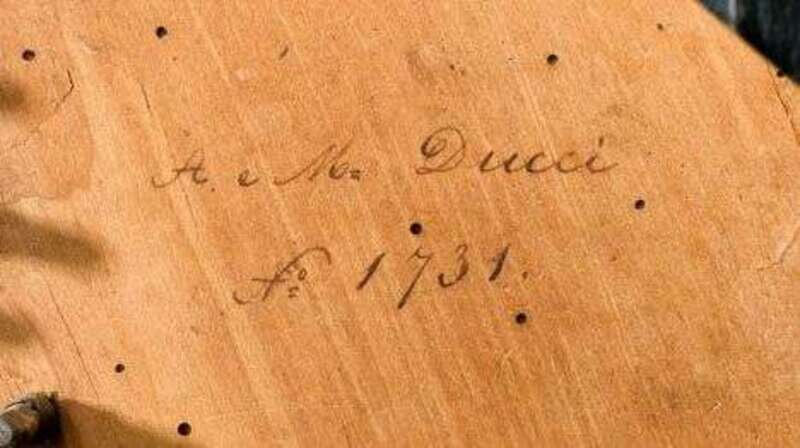 A. e M. Ducci
No. 1731.